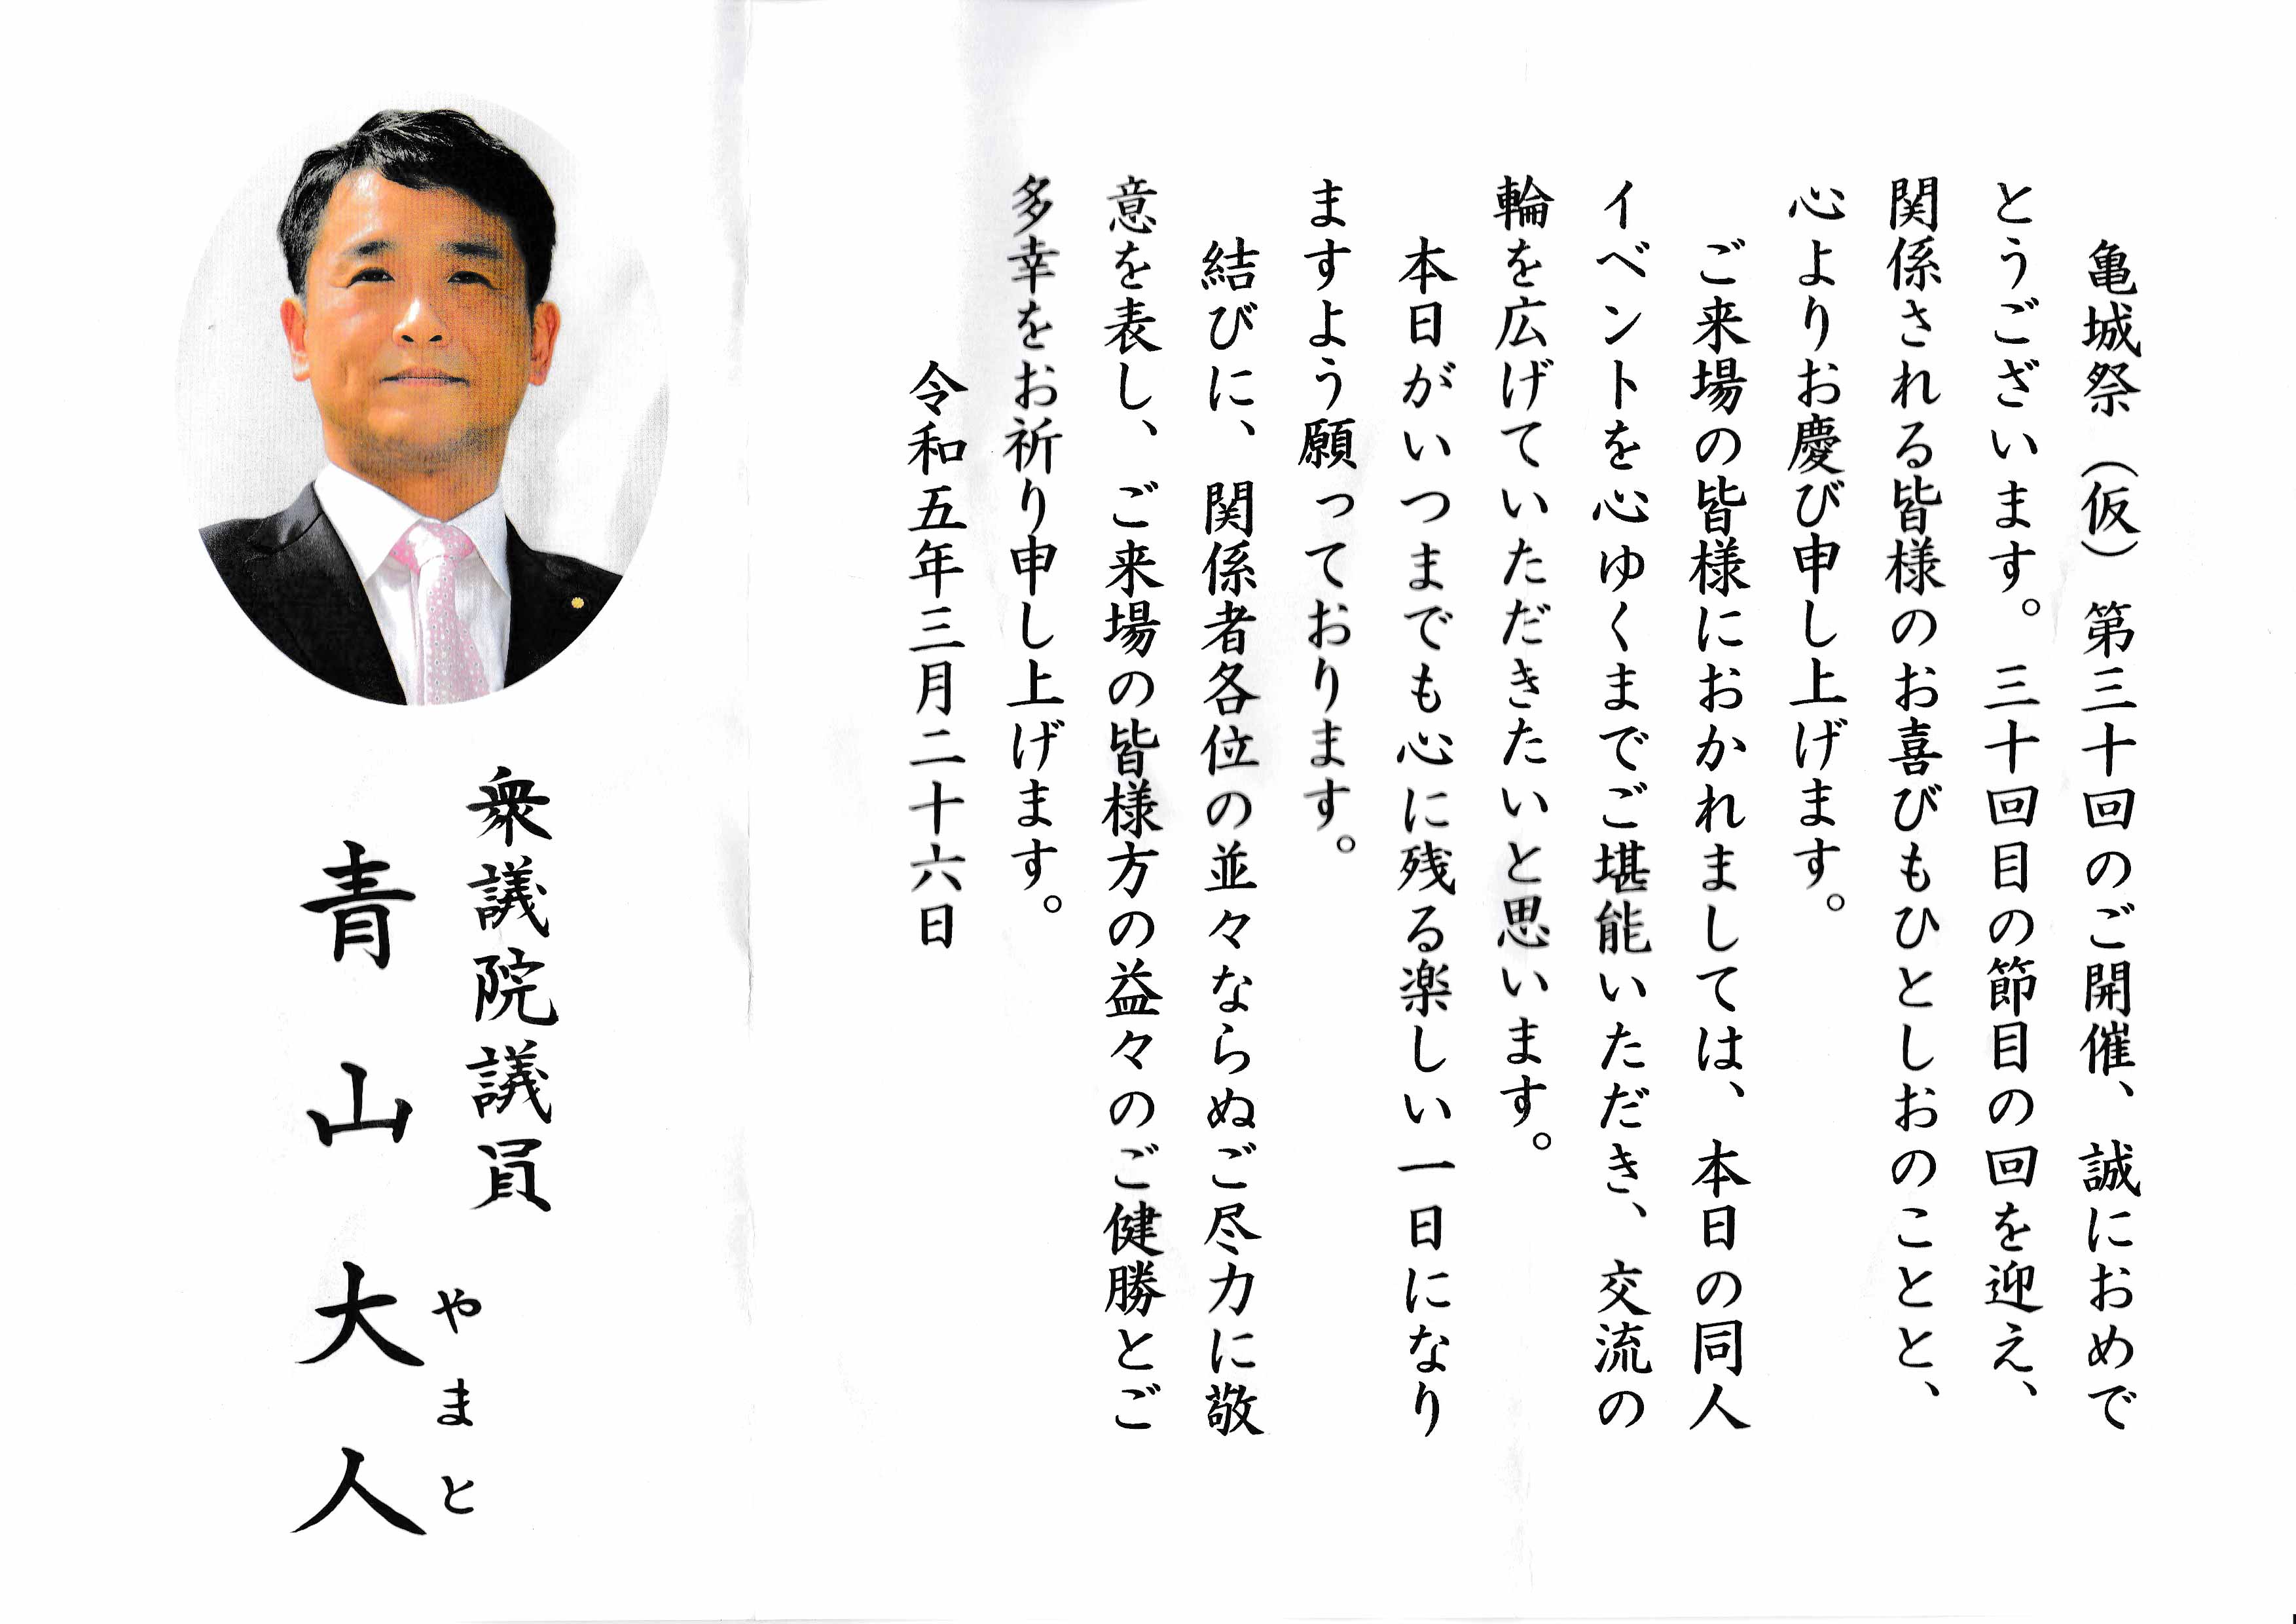 亀城祭（仮）第三十回のご開催、誠におめで
とうございます。三十回目の節目の回を迎え、
関係される皆様のお喜びもひとしおのことと、
心よりお慶び申し上げます。
ご来場の皆様におかれましては、本日の同人
イベントを心ゆくまでご堪能いただき、交流の
輪を広げていただきたいと思います。
本日がいつまでも心に残る楽しい一日になり
ますよう願っております。
結びに、関係者各位の並々ならぬご尽力に敬
意を表し、ご来場の皆様方の益々のご健勝とご
多幸をお祈り申し上げます。
令和五年三月二十六日
衆議院議員
やまと
青山大人